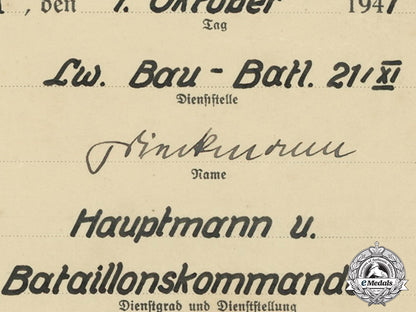 , den 1. Oktober 1941
Tag
Lw. Bau - Batl. 21/XI
Dienststelle
Name
Hauptmann u.
Bataillonskommand
Dienstgrad und Dienststellung
eMedals